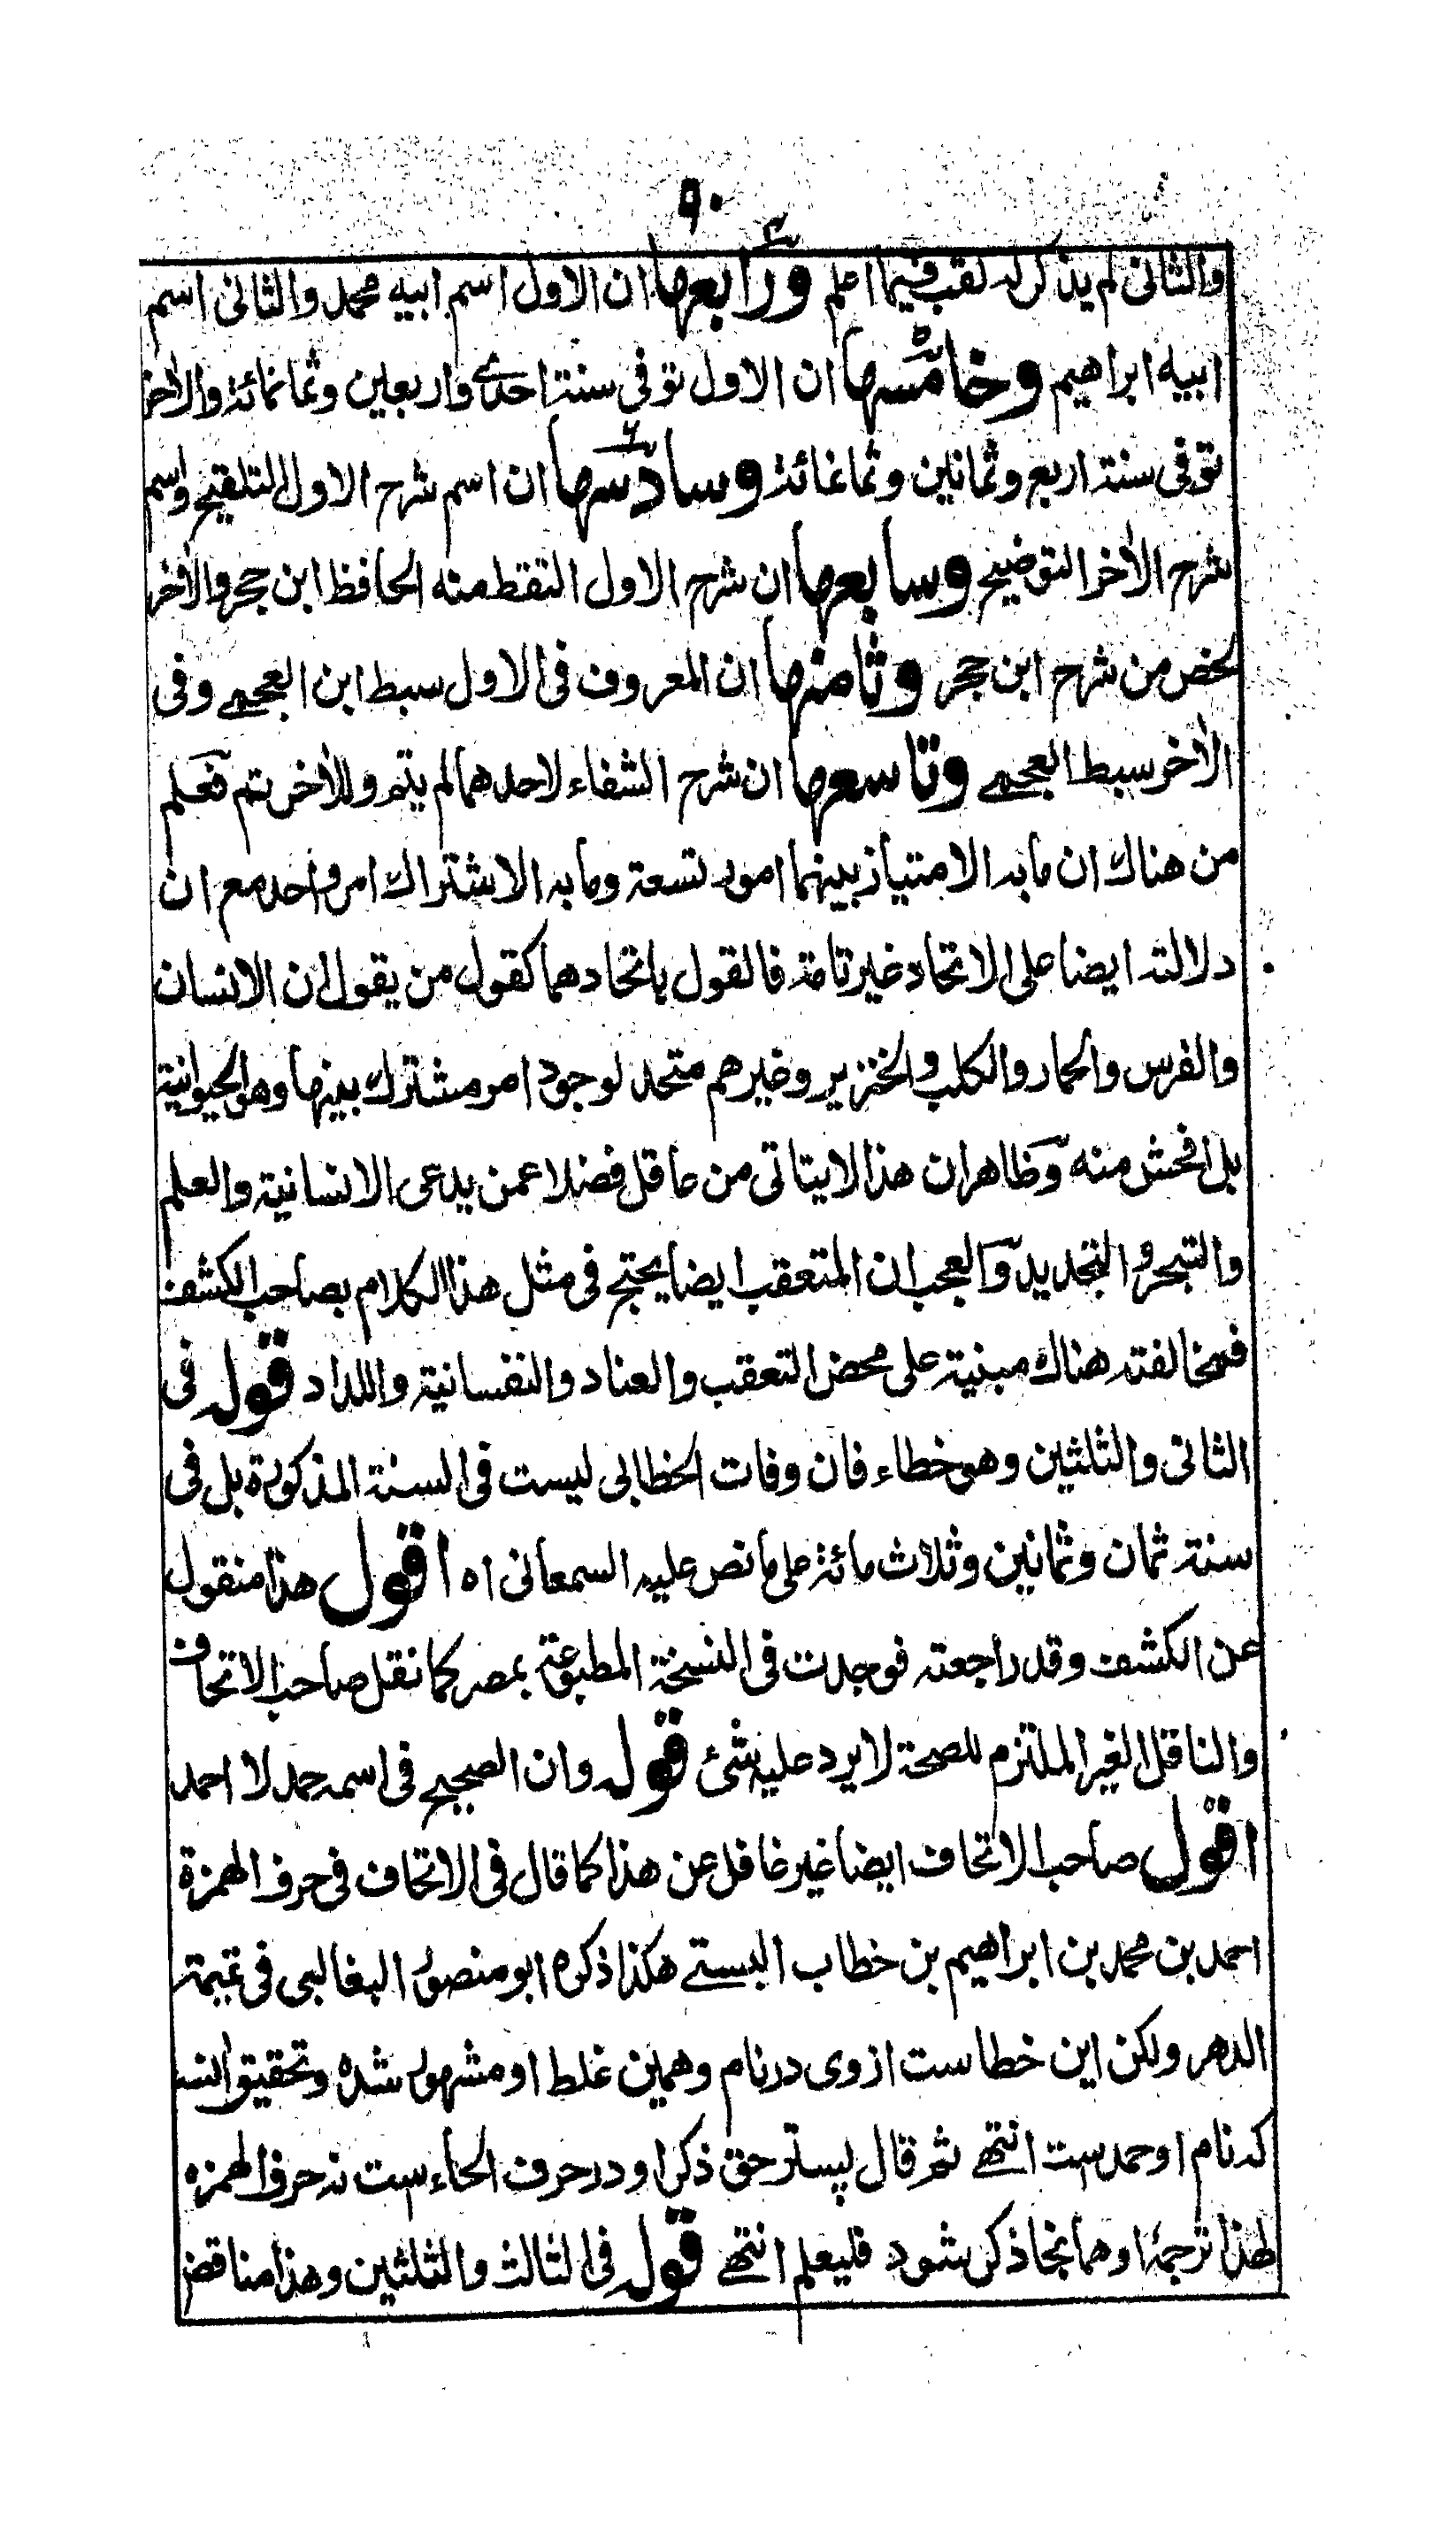 ٩٠
والثانى لم يذكر له لقب فيما اعلم ورابعها ان الاول اسم ابيه محمد والثانى اسم
ابيه ابراهيم وخامسها ان الاول توفى سنة احدى واربعين وثمانمائة والاخر
توفى سنة اربع وثمانين وثمانمائة وسادسها ان اسم شرح الاول التلقيح واسم
شرح الاخر التوضيح وسابعها ان شرح الاول التقط منه الحافظ ابن حجر والاخر
لخص من شرح ابن حجر وثامنها ان المعروف فى الاول سبط ابن العجمے وفى
الاخر سبط العجمے وتاسعها ان شرح الشفاء لاحدهما لم يتم وللاخر تم فعلم
من هناك ان ما به الامتياز بينهما امور تسعة وما به الاشتراك امر واحد مع ان
دلالته ايضا على الاتحاد غير تامة فالقول باتحادهما كقول من يقول ان الانسان
والفرس والحمار والكلب والخنزير وغيرهم متحد لوجود امر مشترك بينها وهو الحيوانية
بل افحش منه وظاهر ان هذا لا يتاتى من عاقل فضلا عمن يدعى الانسانية والعلم
والتبحر والتجديد والعجب ان المتعقب ايضا يحتج فى مثل هذا الكلام بصاحب الكشف
فمخالفته هناك مبنية على محض التعقب والعناد والنفسانية واللداد قوله فى
الثانى والثلثين وهو خطاء فان وفات الخطابى ليست فى السنة المذكورة بل فى
سنة ثمان وثمانين وثلاث مائة على ما نص عليه السمعانى اه اقول هذا منقول
عن الكشف وقد راجعته فوجدت فى النسخة المطبوعة بمصر كما نقل صاحب الاتحاف
والناقل الغير الملتزم للصحة لا يرد عليه شئ قوله وان الصحيح فى اسمه حمد لا احمد
اقول صاحب الاتحاف ايضا غير غافل عن هذا كما قال فى الاتحاف فى حرف الهمزة
احمد بن محمد بن ابراهيم بن خطاب البستے هكذا ذكره ابو منصور البغالبى فى تتيمة
الدهر ولكن اين خطا ست از وى در نام وهمين غلط او مشهور شده وتحقيق انست
كه نام او حمد ست انتهے ثم قال پستر حق ذكر او در حرف الحاء ست نه حرف الهمزه
لهذا ترجمۂ او همانجا ذكر شود فليعلم انتهے قوله فى الثالث والثلثين وهذا مناقض